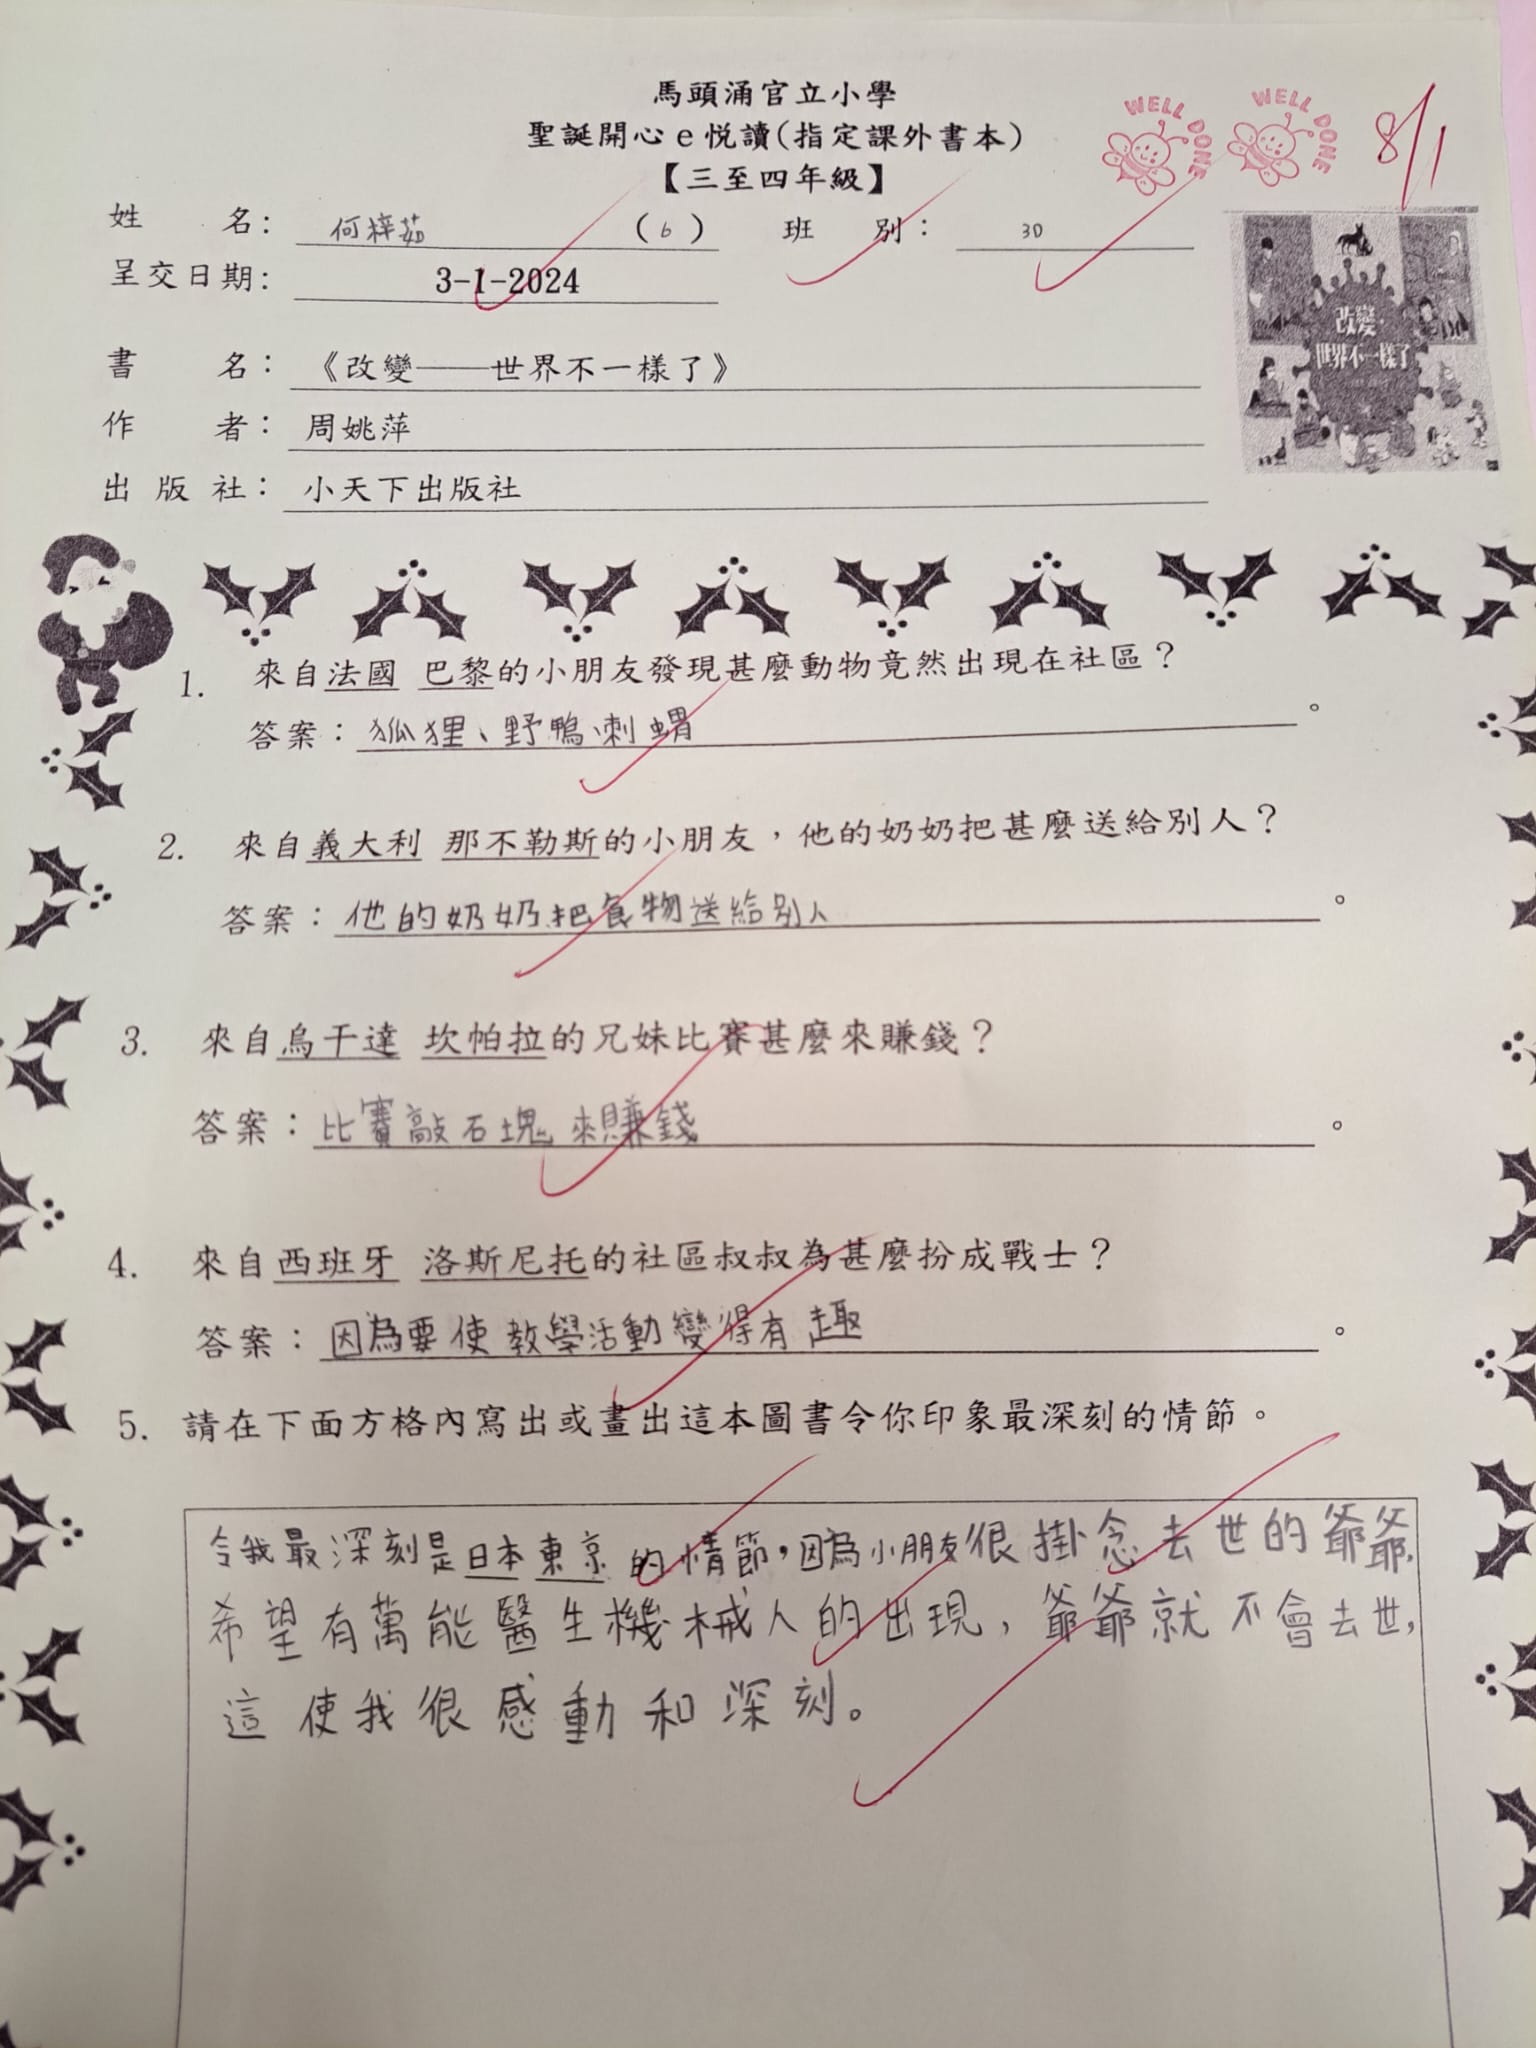 馬頭涌官立小學
聖誕開心e悅讀(指定課外書本)
【三至四年級】
WELL DONE
WELL DONE
8/1
姓 名: 何梓茹 (6) 班 別: 3D
呈交日期: 3-1-2024
書 名:《改變——世界不一樣了》
作 者:周姚萍
出 版 社:小天下出版社
改變,
世界不一樣了
1. 來自法國 巴黎的小朋友發現甚麼動物竟然出現在社區?
答案:狐狸、野鴨、刺蝟。
2. 來自義大利 那不勒斯的小朋友,他的奶奶把甚麼送給別人?
答案:他的奶奶把食物送給別人。
3. 來自烏干達 坎帕拉的兄妹比賽甚麼來賺錢?
答案:比賽敲石塊來賺錢。
4. 來自西班牙 洛斯尼托的社區叔叔為甚麼扮成戰士?
答案:因為要使教學活動變得有趣。
5. 請在下面方格內寫出或畫出這本圖書令你印象最深刻的情節。
令我最深刻是日本東京的情節,因為小朋友很掛念去世的爺爺,
希望有萬能醫生機械人的出現,爺爺就不會去世,
這使我很感動和深刻。